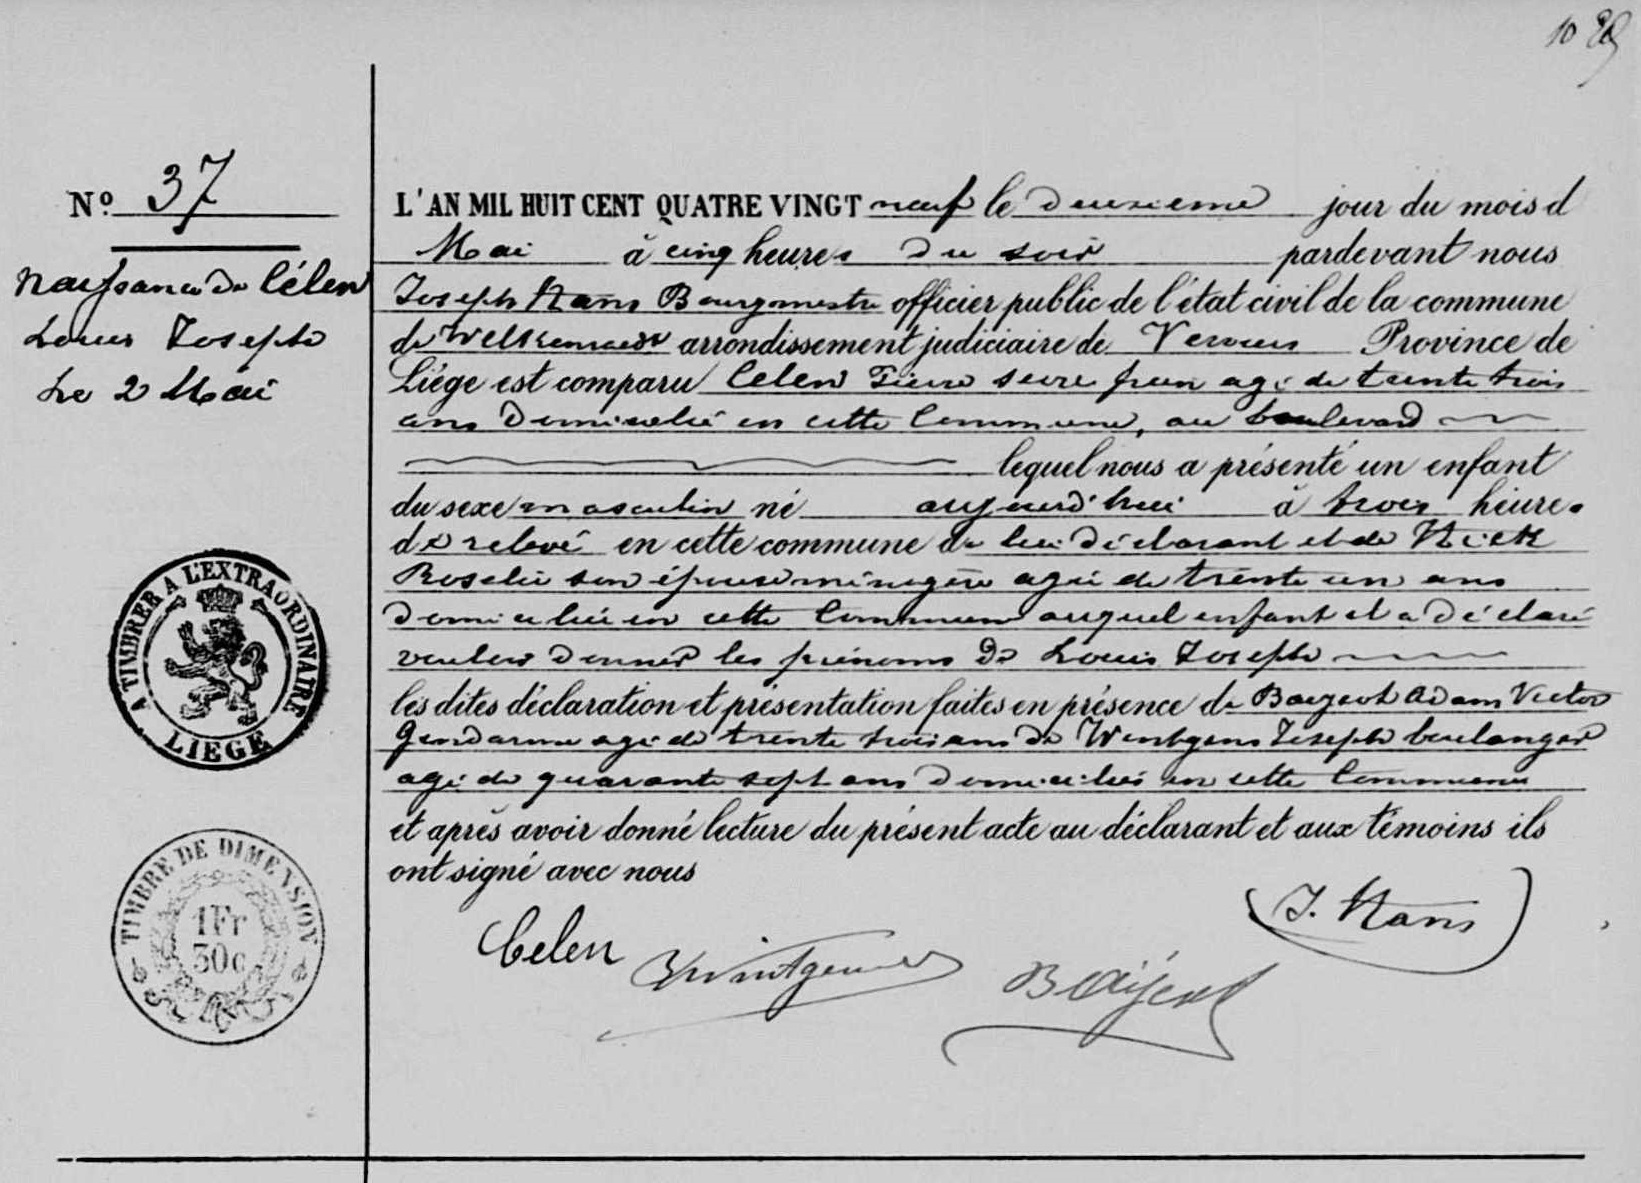 10
Nº 37
Naissance de Célen
Louis Joseph
Le 2 Mai
L'AN MIL HUIT CENT QUATRE VINGT neuf le deuxieme jour du mois d
Mai à cinq heures du soir pardevant nous
Joseph Hans Bourgmestre officier public de l'état civil de la commune
de Welkenraedt arrondissement judiciaire de Verviers Province de
Liége est comparu Celen Pierre serre frein agé de trente trois
ans domicilié en cette Commune, au boulevard
lequel nous a présenté un enfant
du sexe masculin né aujourd'hui à trois heures
de relevé en cette commune de lui déclarant et de Hick
Rosalie son épouse ménagère agée de trente un ans
domiciliée en cette Commune auquel enfant il a déclaré
vouloir donner les prénoms de Louis Joseph
les dites déclaration et présentation faites en présence de Adam Victor
Gendarme agé de trente trois ans de Wintgens Joseph boulanger
agé de quarante sept ans domiciliés en cette Commune
et après avoir donné lecture du présent acte au déclarant et aux témoins ils
ont signé avec nous
J. Hans
Celen
A TIMBRER A L'EXTRAORDINAIRE
LIEGE
TIMBRE DE DIMENSION
1Fr
30c